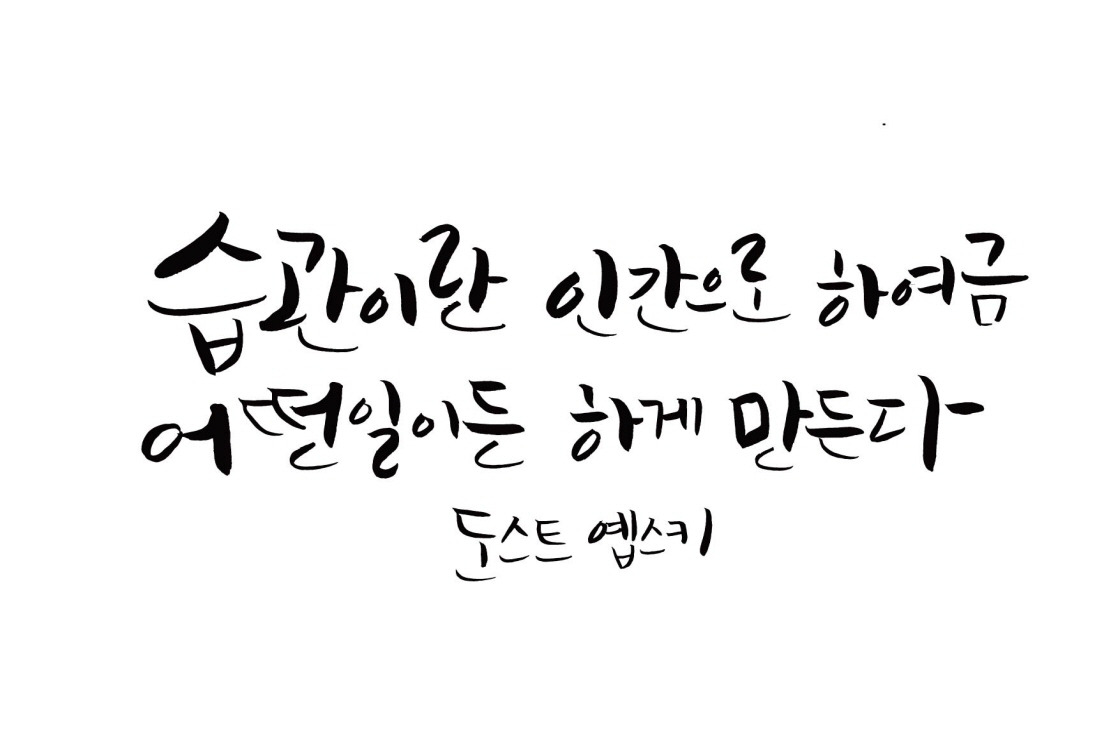 습관이란 인간으로 하여금
어떤일이든 하게 만든다
도스트 옙스키